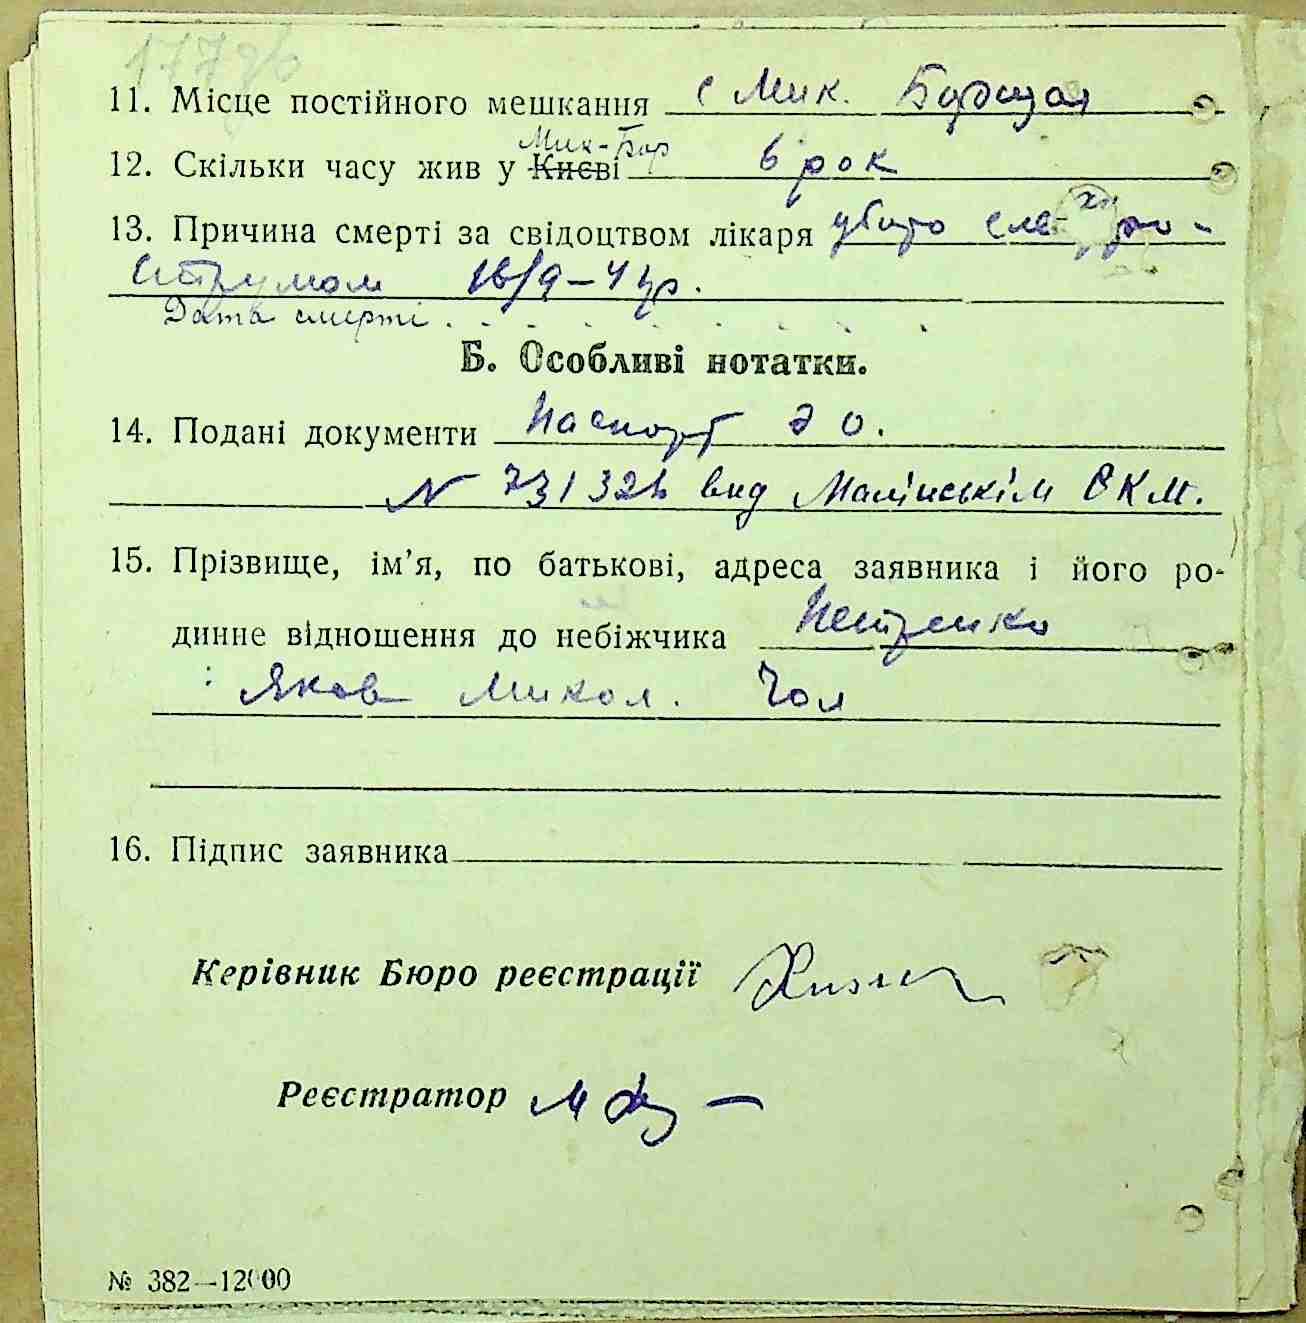 11. Місце постійного мешкання с Мик. Борщая
Мик-Бор
12. Скільки часу жив у Києві 6 рок
13. Причина смерті за свідоцтвом лікаря убито електро-
струмом 16/9-41р.
Дата смерті . . . . . . . . .
Б. Особливі нотатки.
14. Подані документи Паспорт ЭО.
N 731321 вид Малінськім РКМ.
15. Прізвище, ім’я, по батькові, адреса заявника і його ро-
динне відношення до небіжчика Петренко
Яков Микол. Чол
16. Підпис заявника
Керівник Бюро реєстрації
Реєстратор
№ 382—12000